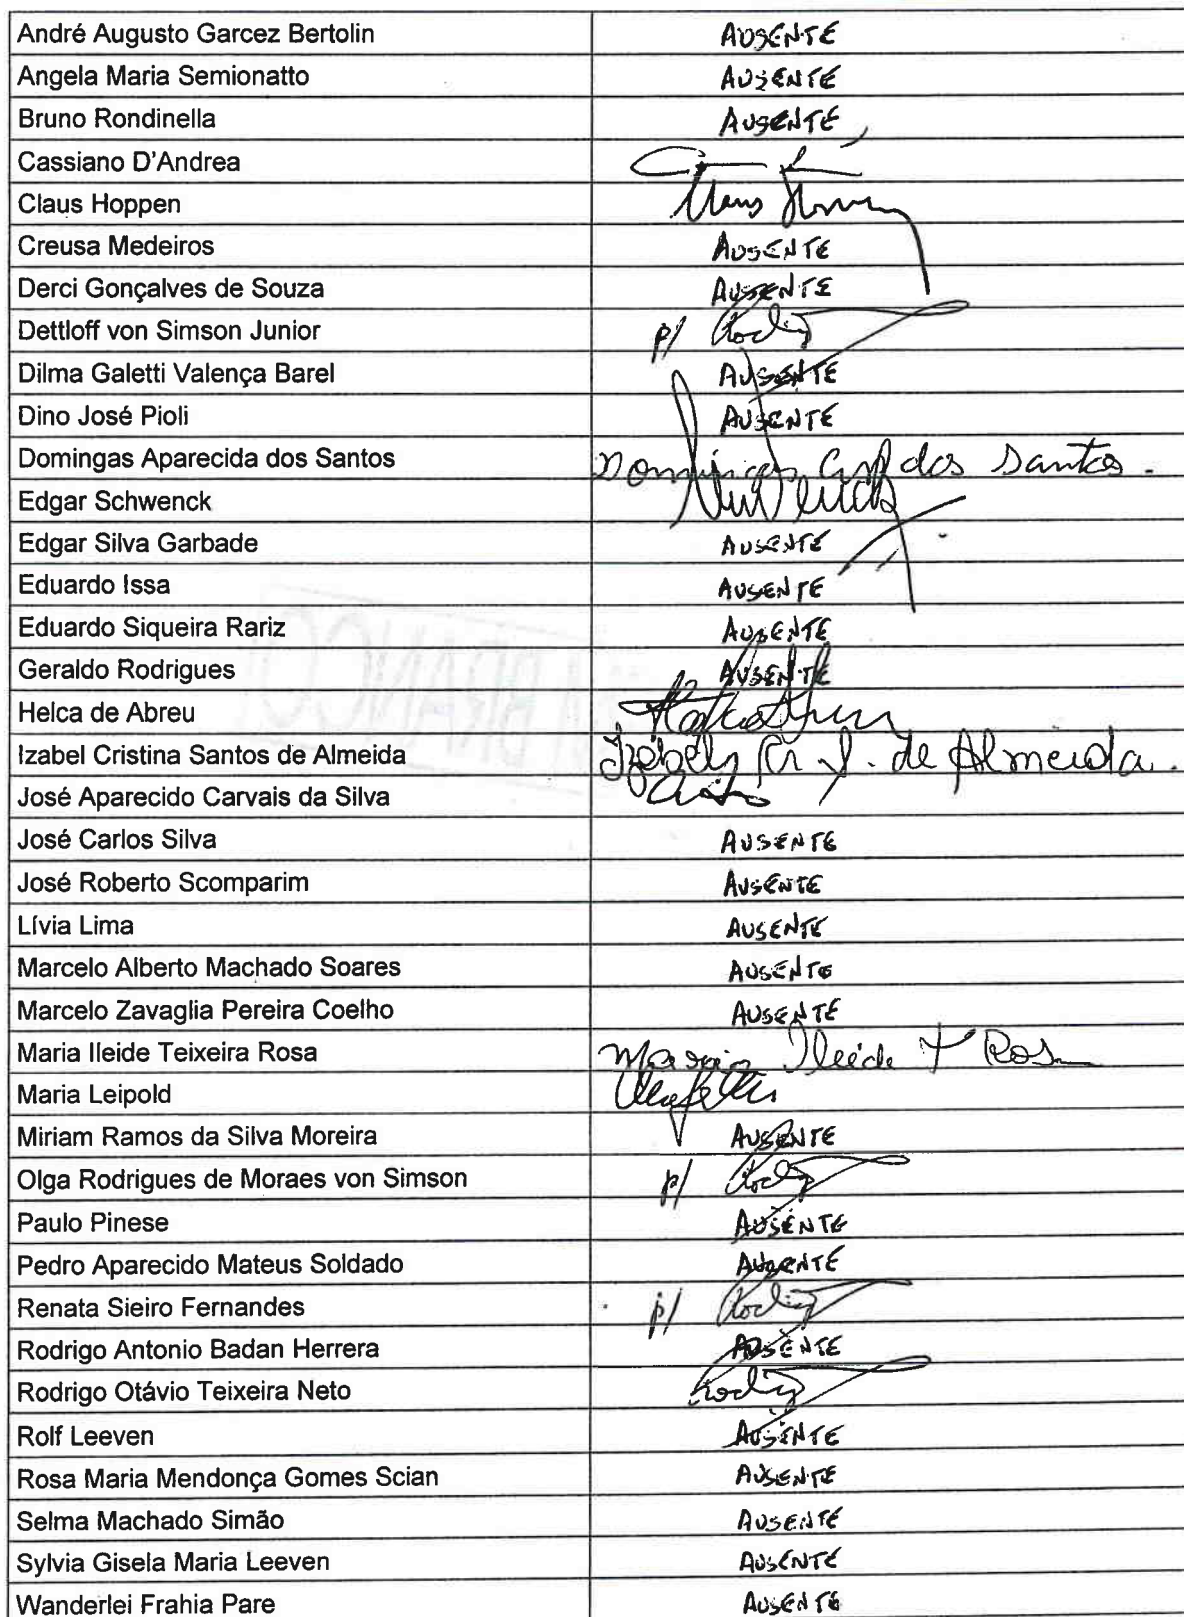 André Augusto Garcez Bertolin AUSENTE
Angela Maria Semionatto AUSENTE
Bruno Rondinella AUSENTE
Cassiano D'Andrea
Claus Hoppen Claus Hoppen
Creusa Medeiros AUSENTE
Derci Gonçalves de Souza AUSENTE
Dettloff von Simson Junior p/
Dilma Galetti Valença Barel AUSENTE
Dino José Pioli AUSENTE
Domingas Aparecida dos Santos Domingas Ap dos Santos.
Edgar Schwenck
Edgar Silva Garbade AUSENTE
Eduardo Issa AUSENTE
Eduardo Siqueira Rariz AUSENTE
Geraldo Rodrigues AUSENTE
Helca de Abreu
Izabel Cristina Santos de Almeida Izabel Cr S. de Almeida.
José Aparecido Carvais da Silva
José Carlos Silva AUSENTE
José Roberto Scomparim AUSENTE
Lívia Lima AUSENTE
Marcelo Alberto Machado Soares AUSENTE
Marcelo Zavaglia Pereira Coelho AUSENTE
Maria Ileide Teixeira Rosa Maria Ileide T Rosa
Maria Leipold
Miriam Ramos da Silva Moreira AUSENTE
Olga Rodrigues de Moraes von Simson p/
Paulo Pinese AUSENTE
Pedro Aparecido Mateus Soldado AUSENTE
Renata Sieiro Fernandes p/
Rodrigo Antonio Badan Herrera AUSENTE
Rodrigo Otávio Teixeira Neto
Rolf Leeven AUSENTE
Rosa Maria Mendonça Gomes Scian AUSENTE
Selma Machado Simão AUSENTE
Sylvia Gisela Maria Leeven AUSENTE
Wanderlei Frahia Pare AUSENTE